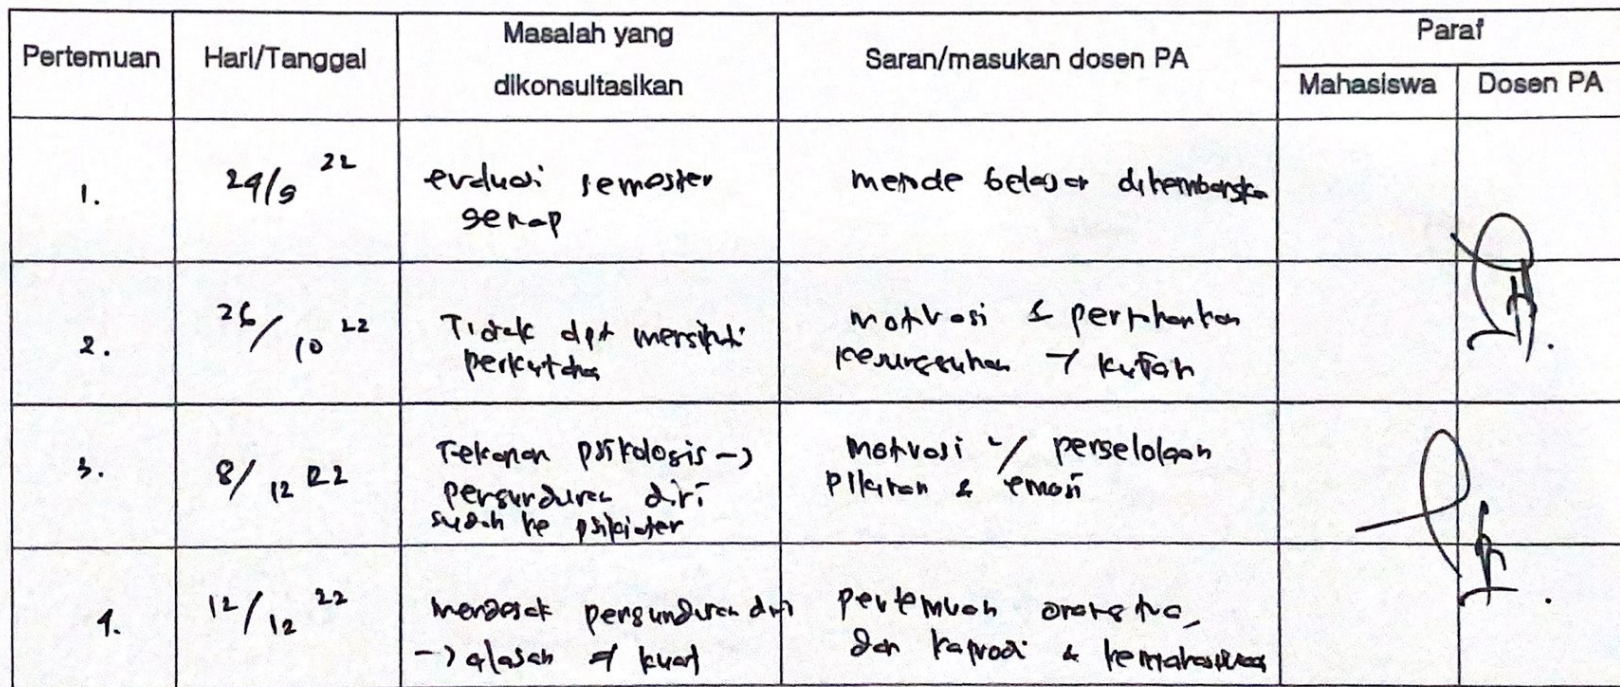 Pertemuan
Hari/Tanggal
Masalah yang
dikonsultasikan
Saran/masukan dosen PA
Paraf
Mahasiswa
Dosen PA
1.
29/9 22
evaluasi semester
genap
metode belajar dikembangkan
2.
26/10 22
Tidak dpt mengikuti
perkuliahan
motivasi & pertahankan
kesungguhan → kuliah
3.
8/12 22
Tekanan psikologis →
pengunduran diri
sudah ke psikiater
Motivasi u/ pengelolaan
pikiran & emosi
4.
12/12 22
mendesak pengunduran diri
→ alasan kuat
pertemuan orang tua,
dan kaprodi & kemahasiswaan